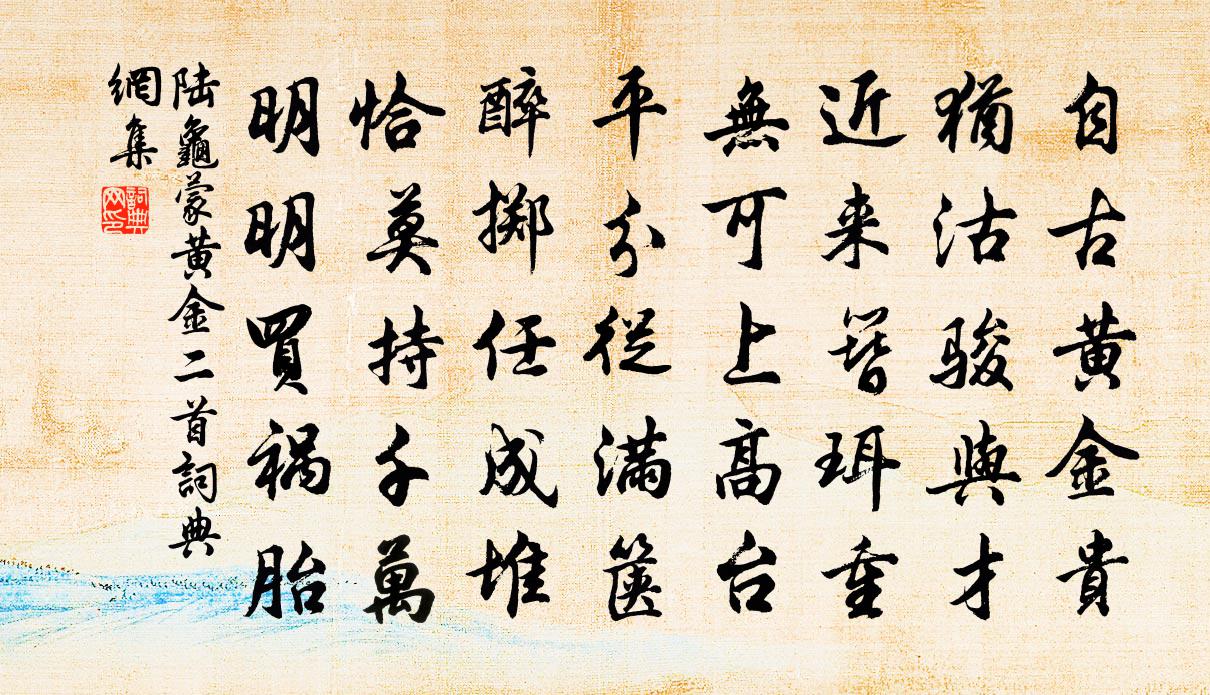 自古黄金貴
猶沽駿與才
近来簪珥重
無可上高台
平分從满篋
醉擲任成堆
恰莫持千萬
明明買祸胎
陆龜蒙黄金二首詞典
網集
詞典
网印